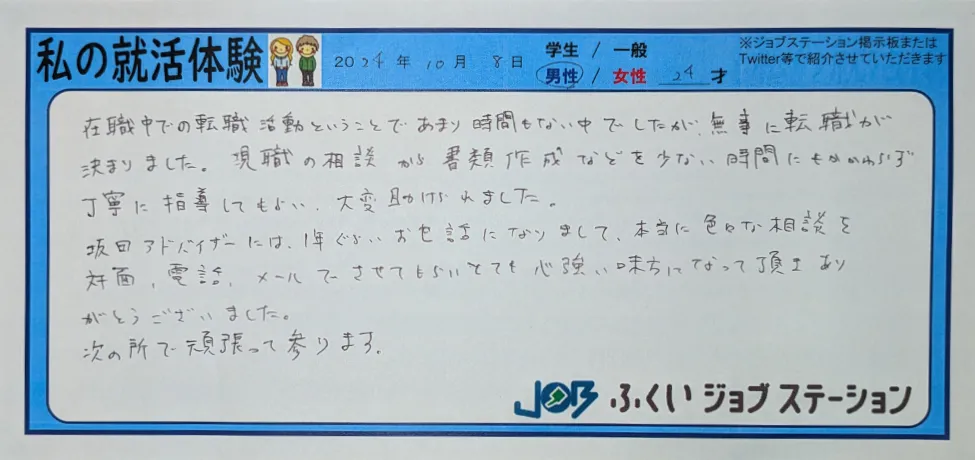 私の就活体験
2024年 10月 8日
学生 / 一般
男性 / 女性 24才
※ジョブステーション掲示板または
Twitter等で紹介させていただきます
在職中での転職活動ということであまり時間もない中でしたが、無事に転職が
決まりました。現職の相談から書類作成などを少ない時間にもかかわらず
丁寧に指導してもらい、大変助けられました。
坂田アドバイザーには、1年ぐらいお世話になりまして、本当に色々な相談を
対面、電話、メールでさせてもらいとても心強い味方になって頂きあり
がとうございました。
次の所で頑張って参ります。
JOB ふくいジョブステーション